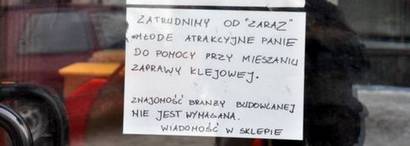 ZATRUDNIMY OD "ZARAZ"
MŁODE ATRAKCYJNE PANIE
DO POMOCY PRZY MIESZANIU
ZAPRAWY KLEJOWEJ.
ZNAJOMOŚĆ BRANŻY BUDOWLANEJ
NIE JEST WYMAGANA.
WIADOMOŚĆ W SKLEPIE